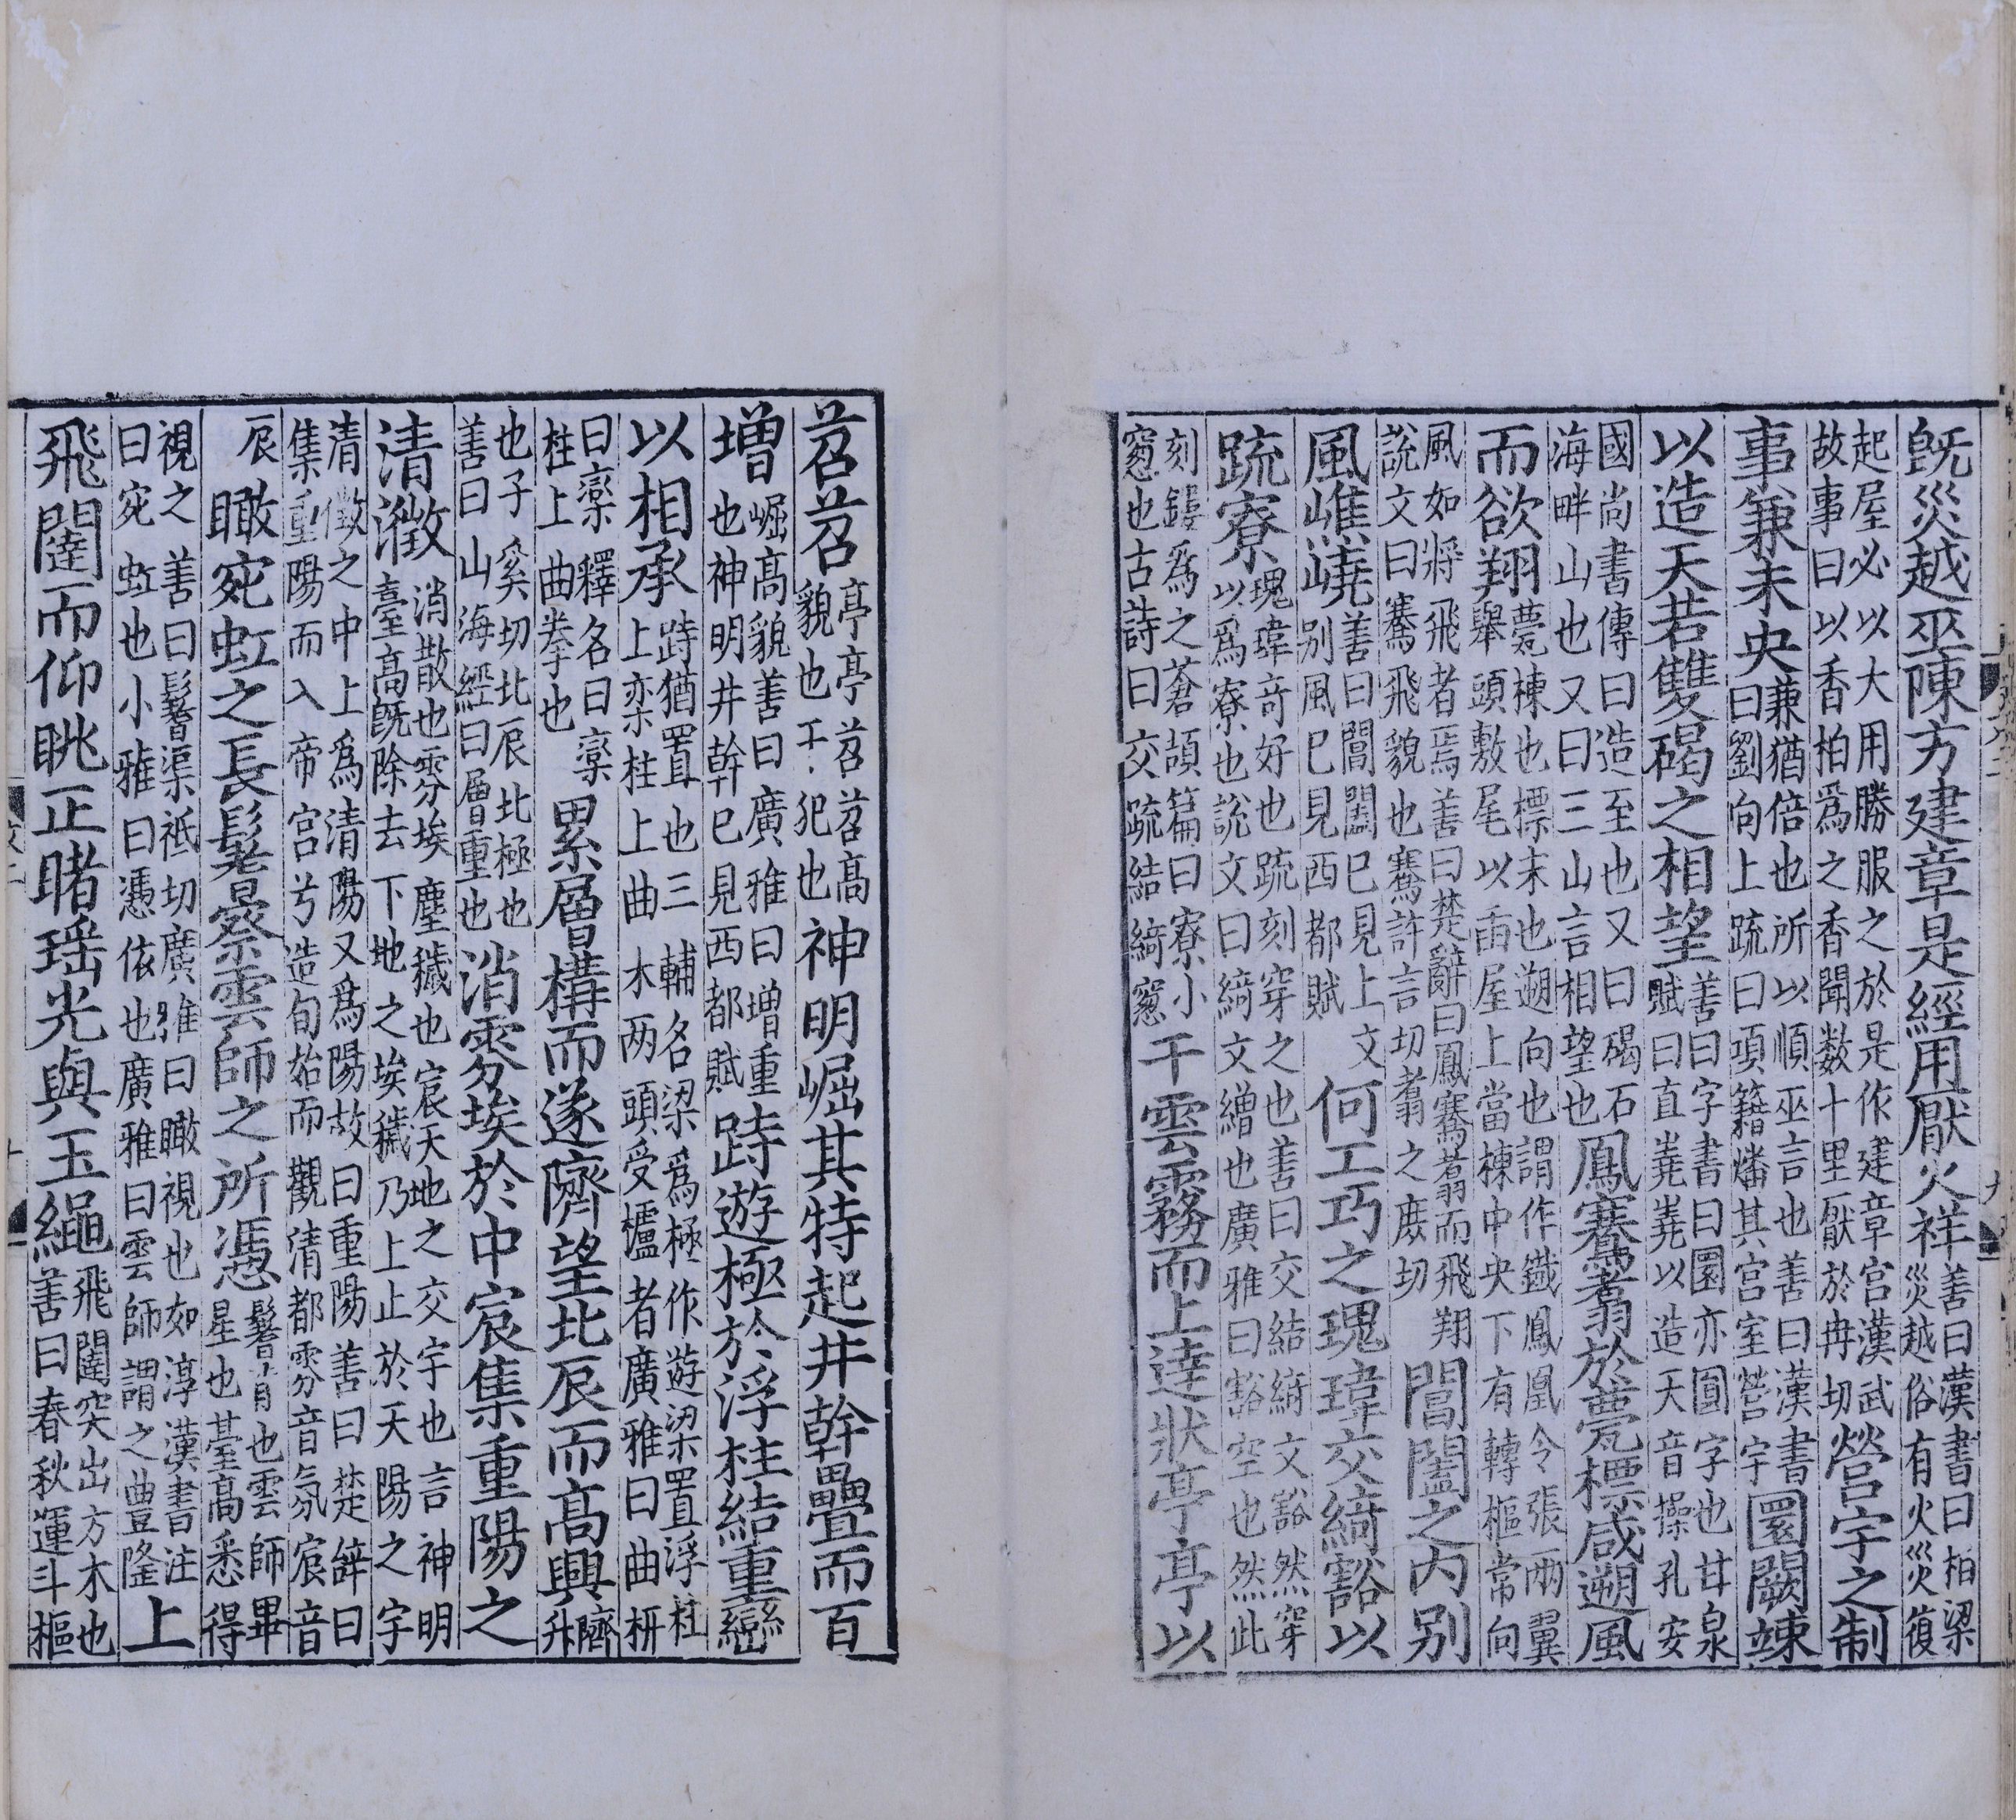 旣災越巫陳方建章是經用厭火祥善曰漢書曰柏梁災越俗有火災復
起屋必以大用勝服之於是作建章宮漢武故事曰以香柏爲之香聞數十里厭於冉切營宇之制
事兼未央兼猶倍也所以順巫言也善曰漢書曰劉向上疏曰項籍燔其宮室營宇圜闕竦
以造天若雙碣之相望善曰字書曰圜亦圓字也甘泉賦曰直嶤嶤以造天音操孔安
國尚書傳曰造至也又曰碣石海畔山也又曰三山言相望也鳳騫翥於甍標咸遡風
而欲翔甍棟也標末也遡向也謂作鐵鳳凰令張兩翼舉頭敷尾以函屋上當棟中央下有轉樞常向
風如將飛者焉善曰楚辭曰鳳騫翥而飛翔說文曰騫飛貌也騫許言切翥之庶切閶闔之內别
風嶕嶢善曰閶闔巳見上文别風巳見西都賦何工巧之瑰瑋交綺豁以
疏寮瑰瑋奇好也疏刻穿之也善曰交結綺文豁然穿以爲寮也說文曰綺文繒也廣雅曰豁空也然此
刻鏤爲之蒼頡篇曰寮小窻也古詩曰交疏結綺窻干雲霧而上逹狀亭亭以
苕苕亭亭苕苕高貌也干犯也神明崛其特起井幹疊而百
增崛高貌善曰廣雅曰增重也神明井幹巳見西都賦跱遊極於浮柱結重欒
以相承跱猶置也三輔名梁爲極作遊梁置浮柱上欒柱上曲木兩頭受櫨者廣雅曰曲枅
曰欒釋名曰欒柱上曲拳也累層構而遂隮望北辰而高興隮升
也子奚切北辰北極也善曰山海經曰層重也消雰埃於中宸集重陽之
清瀓消散也雰埃塵穢也宸天地之交宇也言神明臺高旣除去下地之埃穢乃上止於天陽之宇
清瀓之中上爲清陽又爲陽故曰重陽善曰楚辭曰集重陽而入帝宮兮造旬始而觀清都雰音氛宸音
辰瞰宛虹之長鬐察雲師之所憑鬐脊也雲師畢星也臺高悉得
視之善曰鬐渠祗切廣雅曰瞰視也如淳漢書注曰宛虹也小雅曰憑依也廣雅曰雲師謂之豊隆上
飛闥而仰眺正睹瑶光與玉繩飛闥突出方木也善曰春秋運斗樞